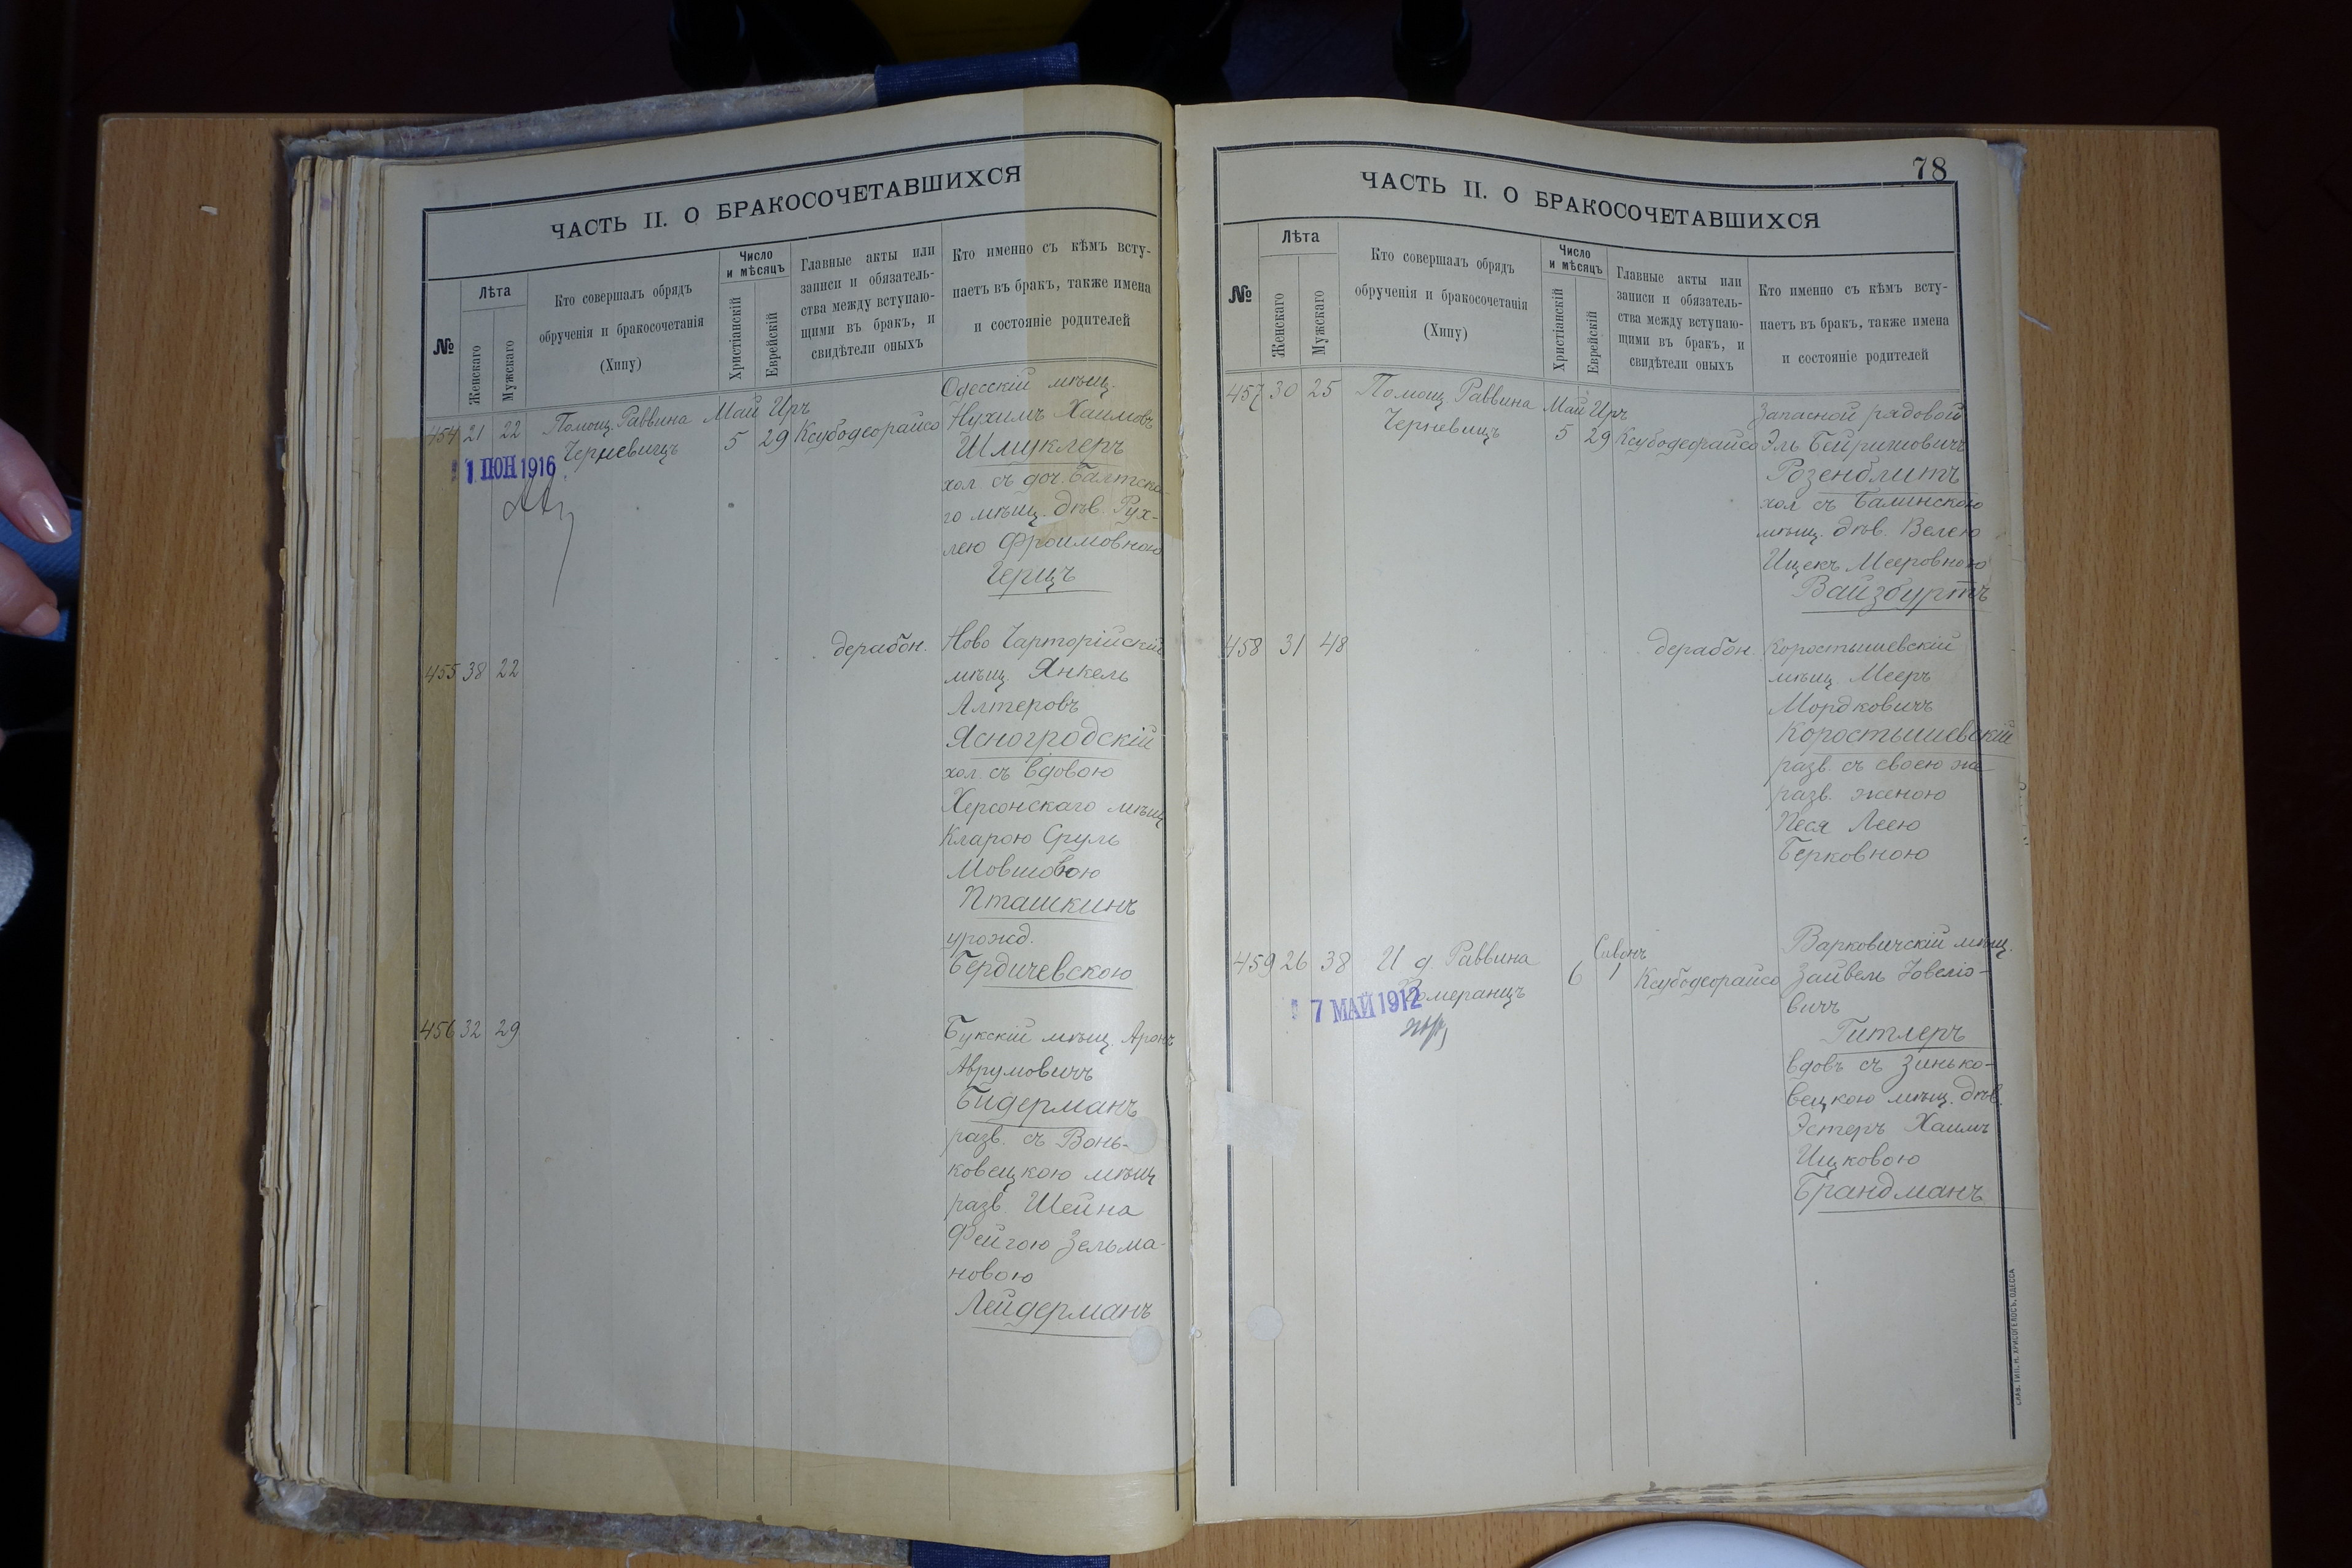 ЧАСТЬ II. О БРАКОСОЧЕТАВШИХСЯ
№
Лѣта
Женскаго
Мужскаго
Кто совершалъ обрядъ
обрученія и бракосочетанія
(Хипу)
Число
и мѣсяцъ
Христіанскій
Еврейскій
Главные акты или
записи и обязатель-
ства между вступаю-
щими въ бракъ, и
свидѣтели оныхъ
Кто именно съ кѣмъ всту-
паетъ въ бракъ, также имена
и состояніе родителей
454 21 22 Помощ. Раввина Май Иръ
Черневичъ 5 29 Ксубодеорайсо
1 ІЮН 1916
Одесскій мѣщ.
Нухимъ Хаимовъ
Шмуклеръ
хол. съ доч. Балтска-
го мѣщ. дѣв. Рух-
лею Фроимовною
Герцъ
455 38 22 дерабон.
Ново Чарторійскій
мѣщ. Янкель
Алтеровъ
Ясногродскій
хол. съ вдовою
Херсонскаго мѣщ
Кларою Сруль
Мовшовою
Пташкинъ
урожд.
Бердичевскою
456 32 29
Букскій мѣщ. Аронъ
Аврумовичъ
Бидерманъ
разв. съ Вонь-
ковецкою мѣщ
разв Шейна
Фейгою Зельма-
новою
Лейдерманъ
78
ЧАСТЬ II. О БРАКОСОЧЕТАВШИХСЯ
№
Лѣта
Женскаго
Мужскаго
Кто совершалъ обрядъ
обрученія и бракосочетанія
(Хипу)
Число
и мѣсяцъ
Христіанскій
Еврейскій
Главные акты или
записи и обязатель-
ства между вступаю-
щими въ бракъ, и
свидѣтели оныхъ
Кто именно съ кѣмъ всту-
паетъ въ бракъ, также имена
и состояніе родителей
457 30 25 Помощ. Раввина Май Иръ
Черневичъ 5 29 Ксубодеорайсо
Запасной рядовой
Эль Бейришовичъ
Розенблитъ
хол съ Балинскою
мѣщ. дѣв. Велею
Ицекъ Мееровною
Вайзбуртъ
458 31 48 дерабон.
Коростышевскій
мѣщ. Мееръ
Мордковичъ
Коростышевскій
разв. съ своею же
разв. женою
Песя Леею
Берковною
459 26 38 И д Раввина Сивонъ
Померанцъ 6 1 Ксубодеорайсо
7 МАЙ 1912
Варковичскій мѣщ.
Зайвель Іовеліо-
вичъ
Гитлеръ
вдовъ съ Зинько-
вецкою мѣщ. дѣв.
Эстеръ Хаимъ
Ицковою
Брандманъ
СКЛ. ТИП. Н. ХРИСОГЕЛОСЪ, ОДЕССА